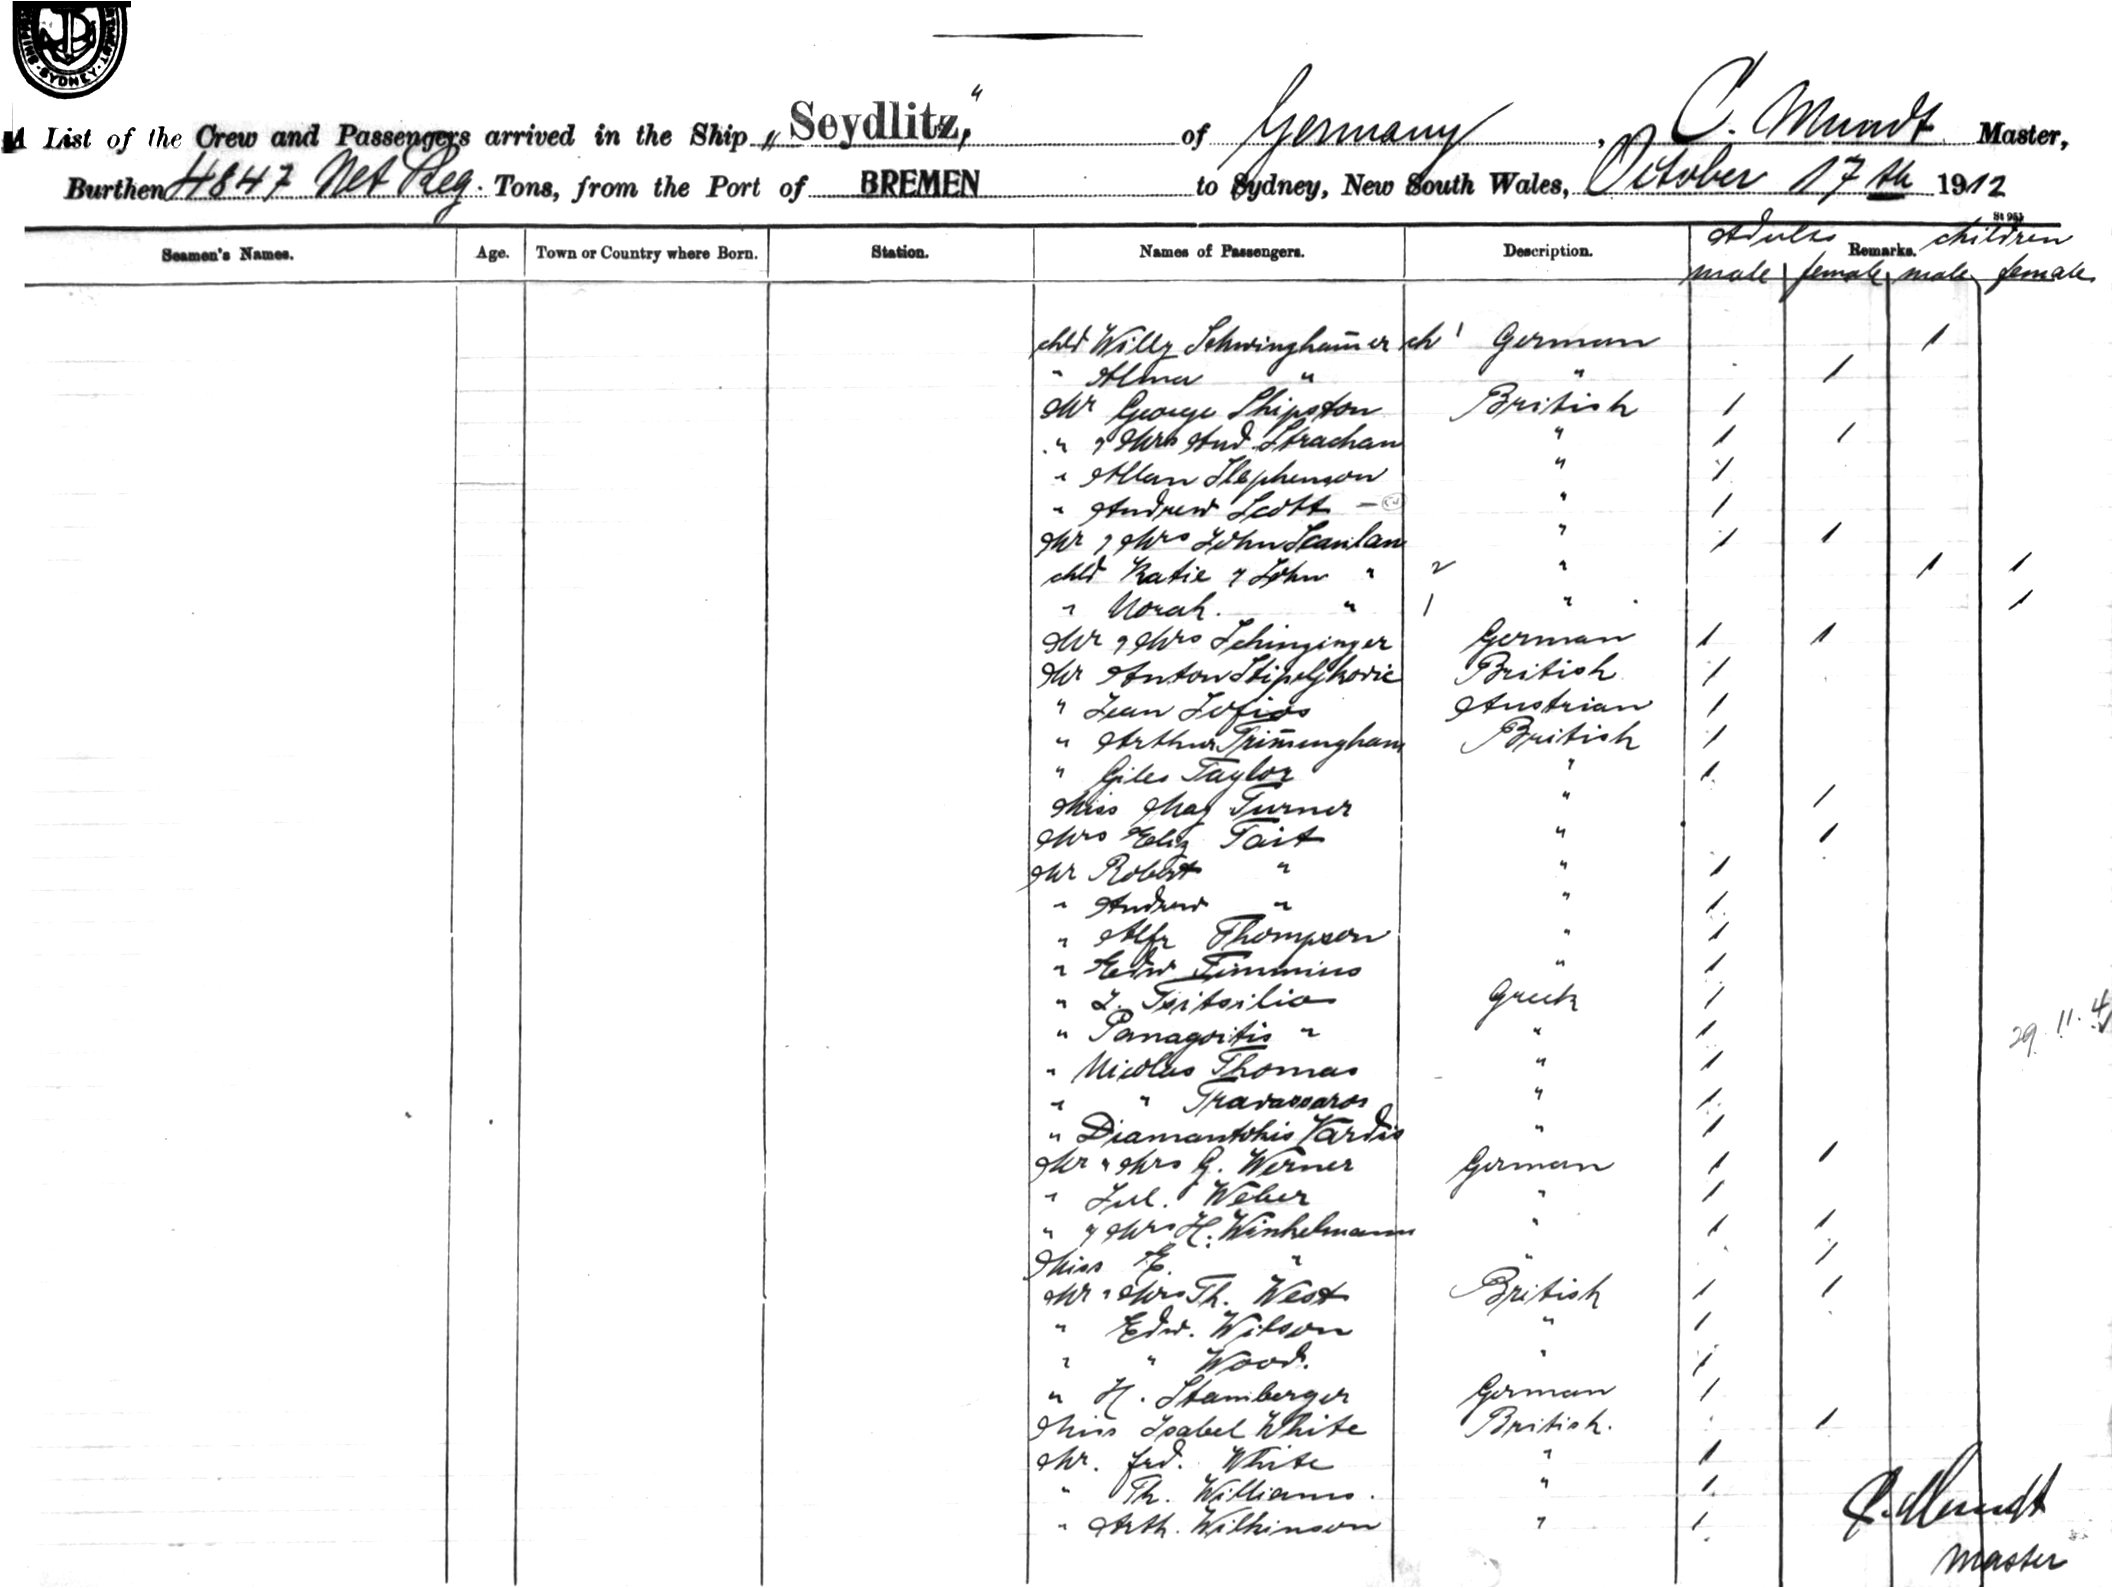 SYDNEY
A List of the Crew and Passengers arrived in the Ship „ Seydlitz," of Germany, C. Mundt Master,
Burthen 4847 Net Reg. Tons, from the Port of BREMEN to Sydney, New South Wales, October 17th 1912
St 961
Seamen's Names. Age. Town or Country where Born. Station. Names of Passengers. Description. Adults Remarks. children
male female male female
chld Willy Schwingham̄er ch 1 German 1
" Alma " " 1
Mr George Shipston British 1
" & Mrs And. Strachan " 1 1
" Allan Stephenson " 1
" Andrew Scott — " 1
Mr & Mrs John Scanlan " 1 1
chld Katie & John " 2 " 1 1
" Norah. " 1 " 1
Mr & Mrs Schinzinger German 1 1
Mr Anton Stipeljkovic British 1
" Jean Sofios Austrian 1
" Arthur Trim̄engham British 1
" Giles Taylor " 1
Miss Mag Turner " 1
Mrs Eliz Tait " 1
Mr Robert " " 1
" Andrew " " 1
" Alfr Thompson " 1
" Edw Timmins " 1
" J. Tsitsilias Greek 1
" Panagoitis " " 1
" Nicolas Thomas " 1
" " Travassaros " 1
" Diamantohis Vardis " 1
Mr " Mrs G. Werner German 1 1
" Jul. Weber " 1
" & Mrs H. Winkelmann " 1 1
Miss E. " " 1
Mr " Mrs Th. West British 1 1
" Edw. Wilson " 1
" " Wood. " 1
" H. Stamberger German 1
Miss Isabel White British. 1
Mr. Frd. White " 1
" Th. Williams. " 1
" Arth. Wilkinson " 1
29. 11. 4
C. Mundt
Master